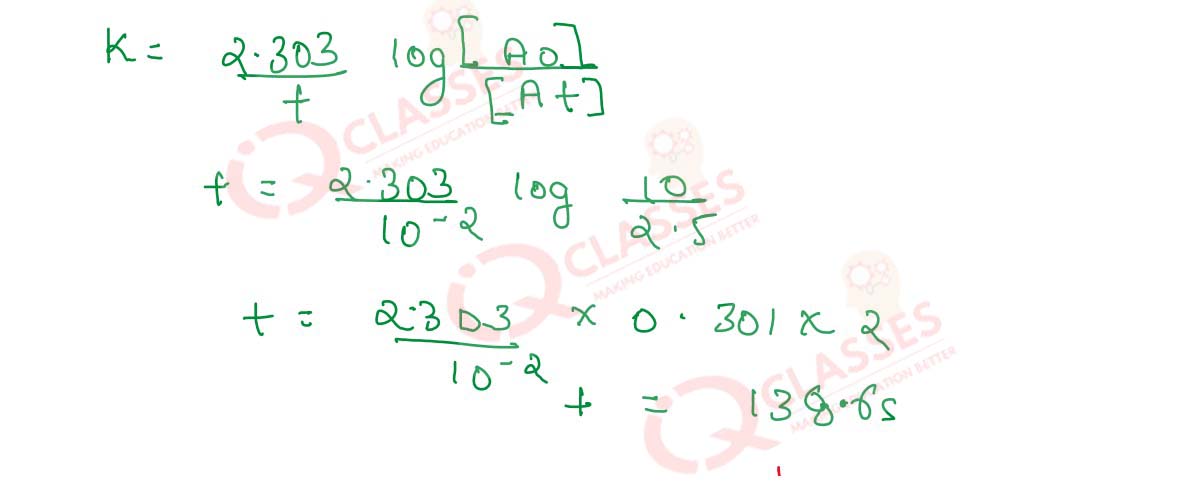 K = 2.303/t log [A0]/[At]
t = 2.303/10⁻² log 10/2.5
t = 2.303/10⁻² × 0.301 × 2
t = 138.6s
IQ CLASSES
MAKING EDUCATION BETTER
IQ CLASSES
MAKING EDUCATION BETTER
IQ CLASSES
MAKING EDUCATION BETTER